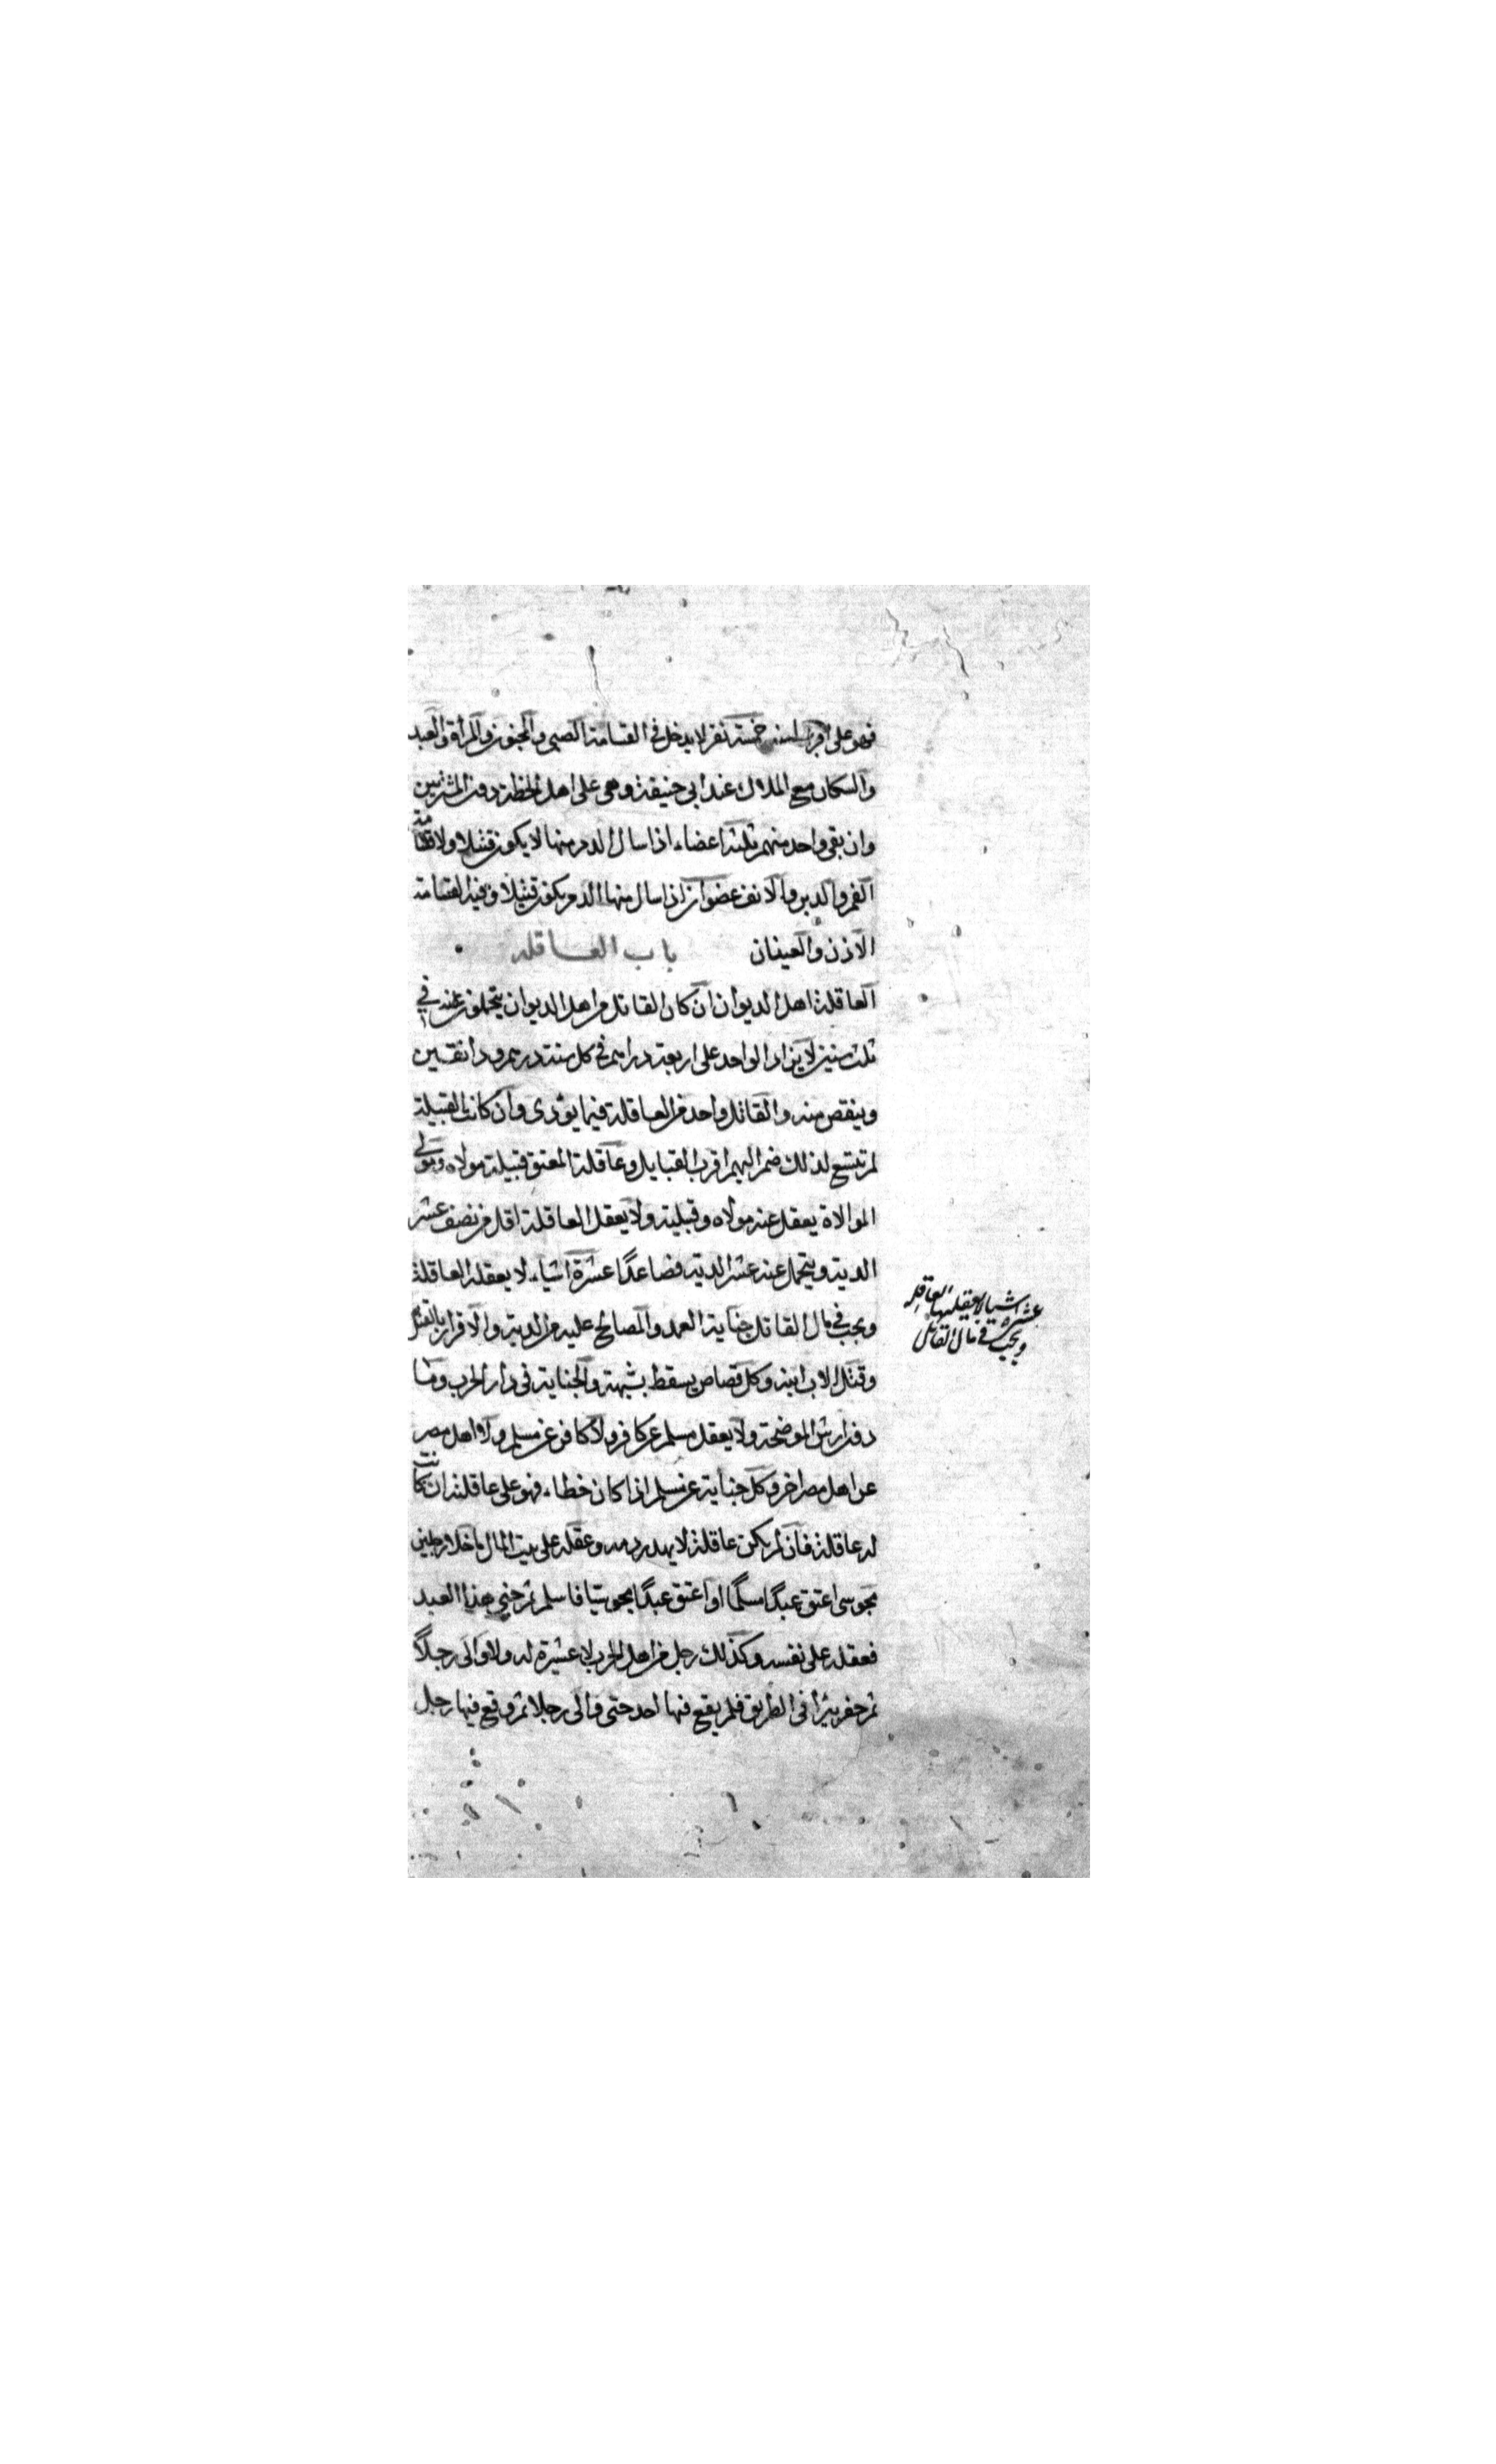 فهو على اقرب خمسة نفر لا يدخل في القسامة الصبي والمجنون والمرأة والعبد
والسكان مع الملاك عند ابي حنيفة وهي على اهل الخطة دون المشترين
وان بقي واحد منهم ثلثة اعضاء اذا سال الدم منها لا يكون قتيلا ولا قسامة
الفم والدبر والانف عضوان اذا سال منها الدم يكون قتيلا وفيه القسامة
الاذن والعينان باب العاقله
العاقلة اهل الديوان ان كان القاتل من اهل الديوان يتحملون عنه في
ثلث سنين لا يزاد الواحد على اربعة دراهم في كل سنة درهم ودانقين
وينقص منه والقاتل واحد من العاقلة فيما يؤدى وان كانت القبيلة
لم تتسع لذلك ضم اليهم اقرب القبايل وعاقلة المعتق قبيلة مولاه ومولى
الموالاة يعقل عنه مولاه وقبيلته ولا يعقل العاقلة اقل من نصف عشر
الدية ويتحمل عنه عشر الدية فصاعدًا عشرة اشياء لا يعقله العاقلة
ويجب في مال القاتل جناية العمد والمصالح عليه من الدية والاقرار بالقتل
وقتل الاب ابنه وكل قصاص يسقط بشبهة والجناية في دار الحرب وما
دون ارش الموضحة ولا يعقل مسلم عن كافر ولا كافر عن مسلم ولا اهل مصر
عن اهل مصر اخر وكل جناية عن مسلم اذا كان خطاء فهو على عاقلته ان كانت
له عاقلة فان لم يكن عاقلة لا يهدر دمه وعقله على بيت المال ما خلا رجلين
مجوسى اعتق عبدًا مسلمًا او اعتق عبدًا مجوسيًا فاسلم ثم جنى هذا العبد
فعقله على نفسه وكذلك رجل من اهل الحرب لا عشيرة له ولا والى رجلاً
ثم حفر بئرًا في الطريق فلم يقع فيها احد حتى والى رجلا ثم وقع فيها رجل
عشرة اشيا لا يعقلها العاقله
ويجب في مال القاتل